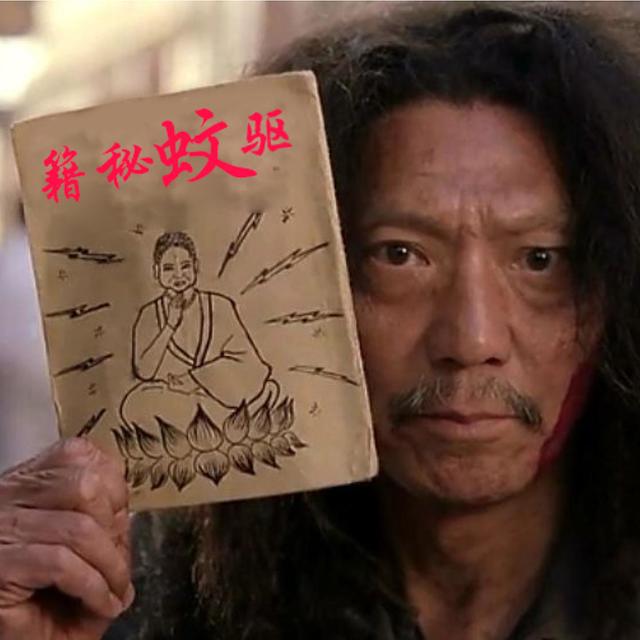 驱蚊秘籍